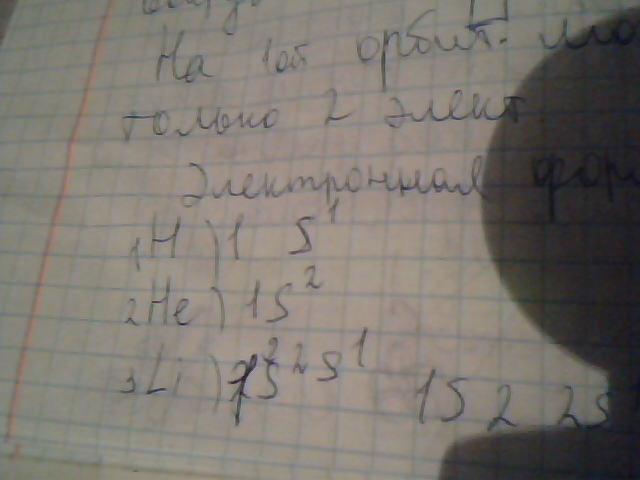 На 1ой орбит. мо
только 2 элект
Электронная фор
₁H ) 1 s¹
₂He ) 1s²
₃Li ) 1s² 2s¹ 1s2 2s